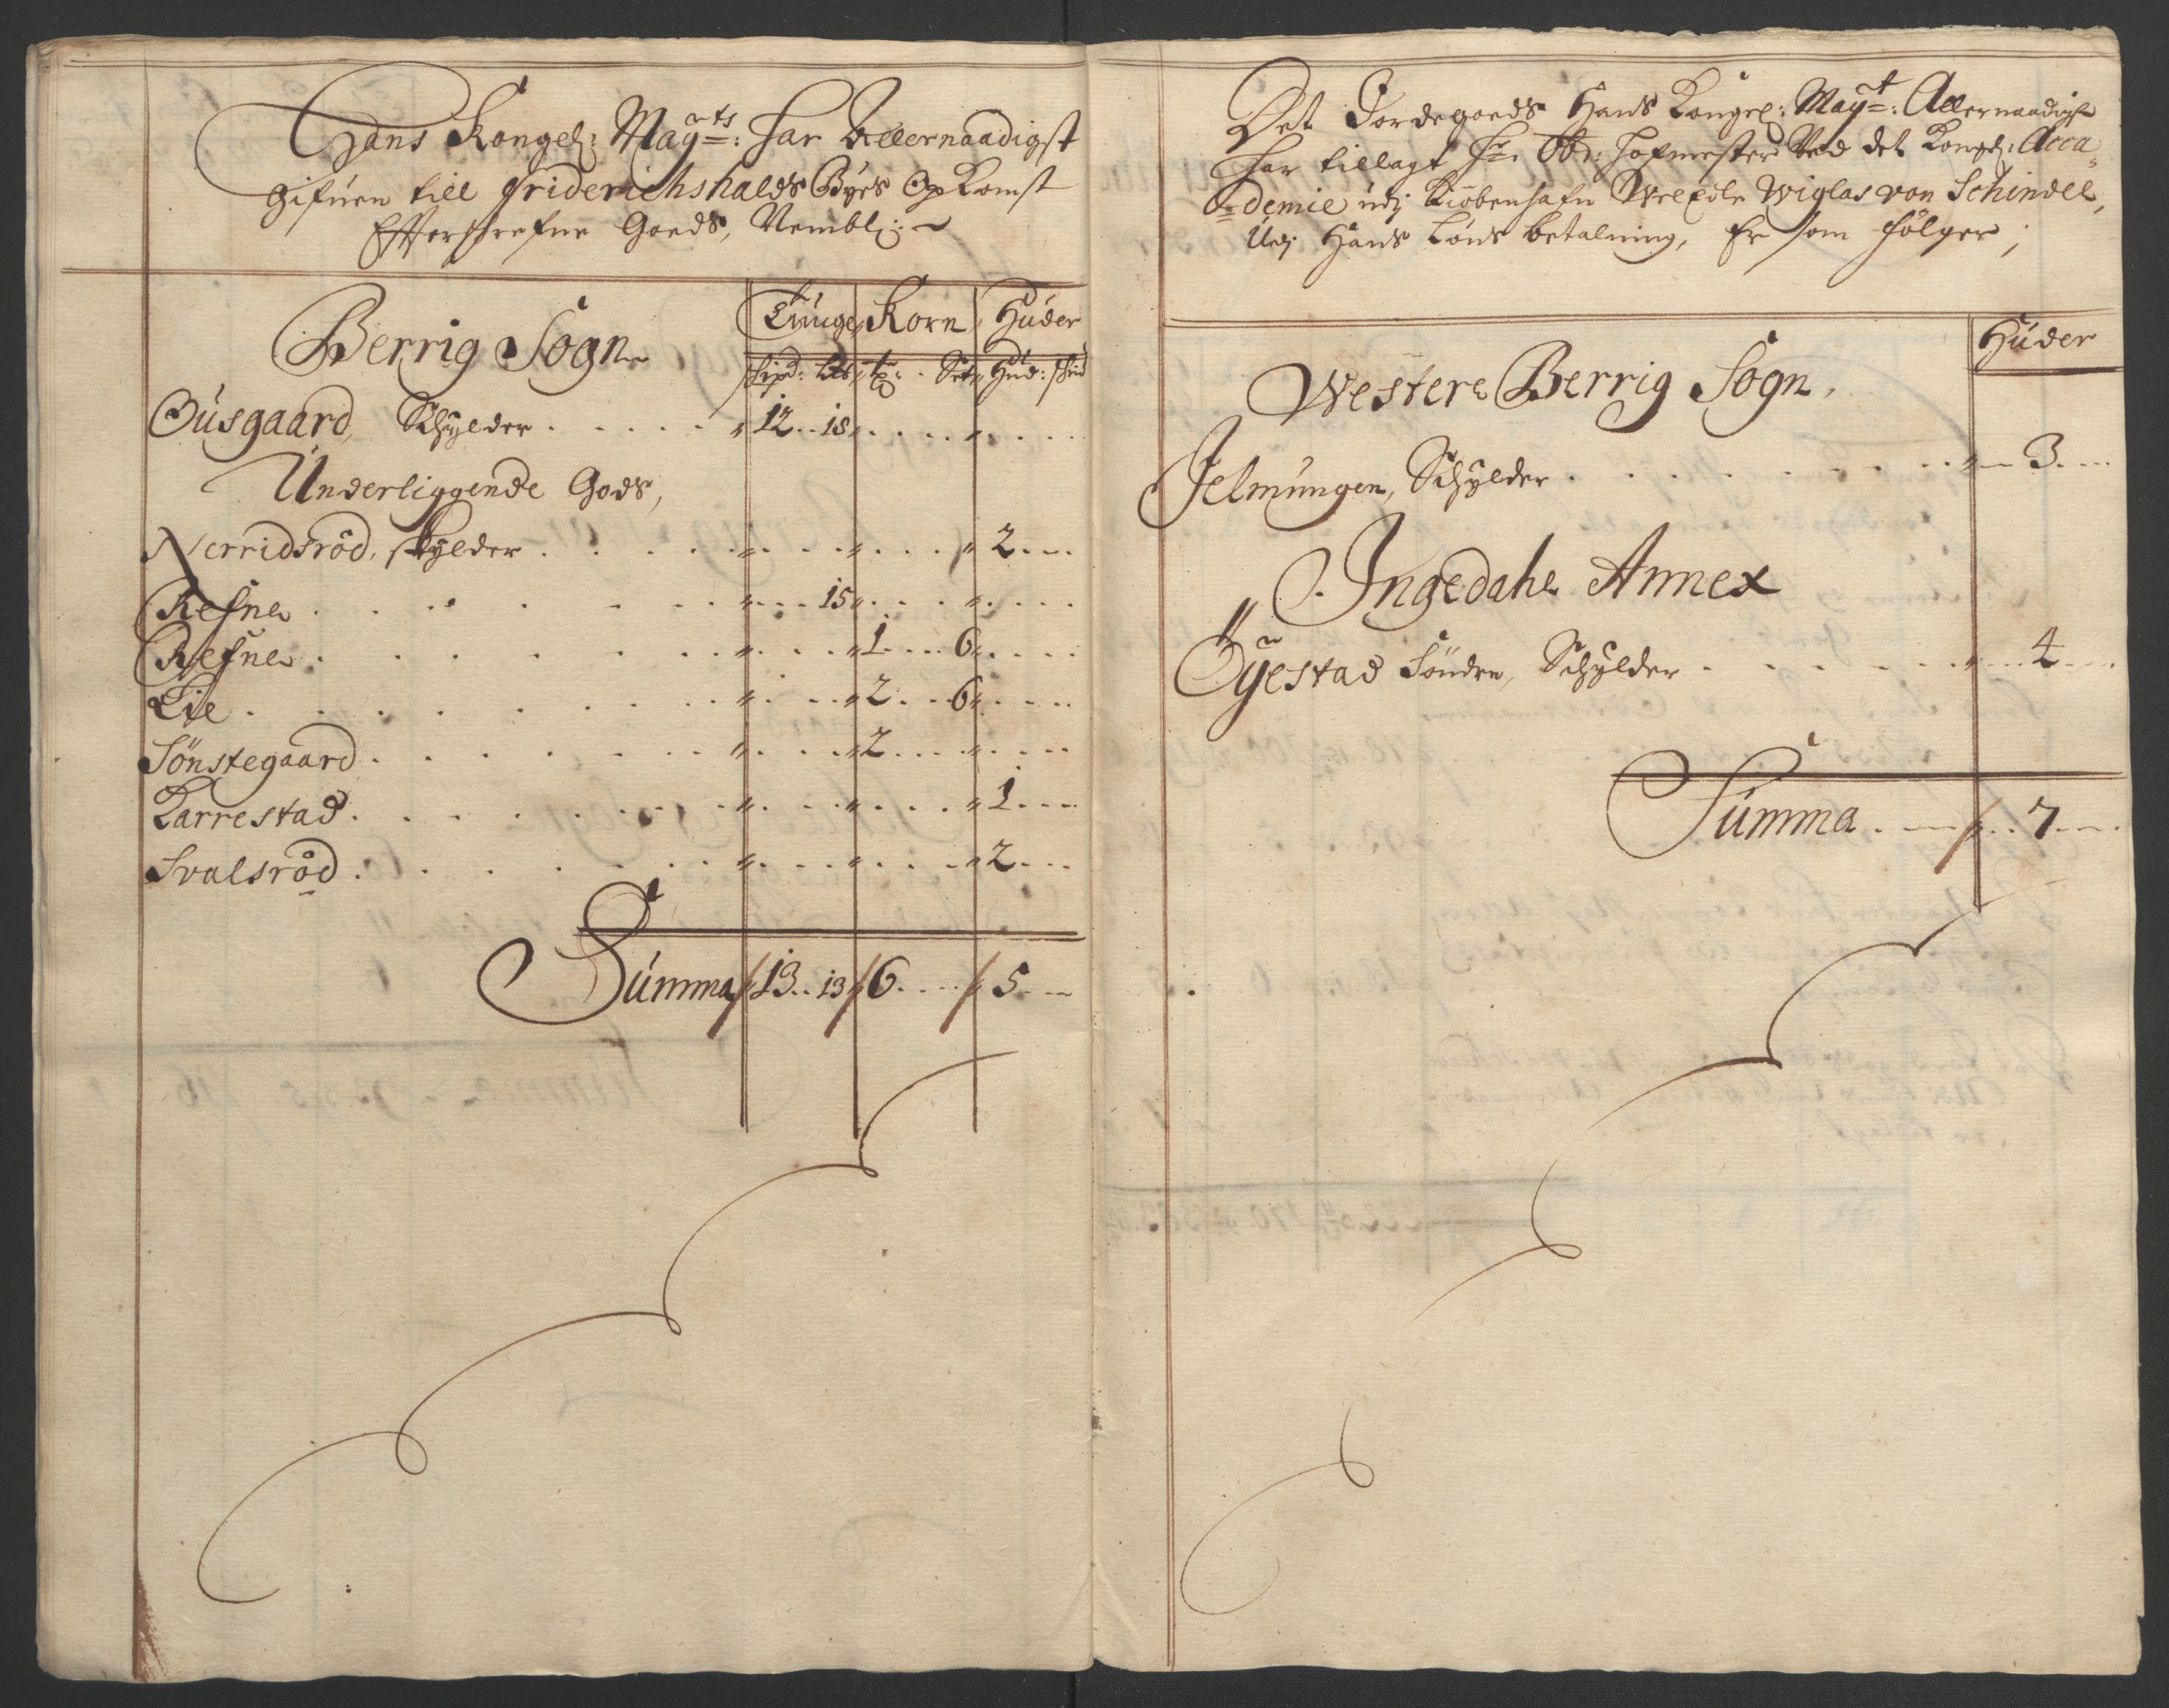 Hans Kongel: May:ts har Allernaadigst
gifuen till Friderichshalds Byes Opkomst
Effterskrefne Goeds, Nembl:
Berrig Sogn
Tunge Korn Huder
skipd: Lb tr: Set Hud: skind
Gusgaard, Schylder . . . . . 12 .. 18
Underliggende Gods,
Nerridsröd, skylder . . . . 2
Refne . . . . . 15
Refne . . . . . 1 .... 6
Lie . . . . . 2 ... 6
Sönstegaard . . . . . 2
Karrestad . . . . . 1
Svalsröd . . . . . 2
Summa 13 .. 13 6 5
Det Jordegoeds Hans Kongel: May:t: Allernaadigst
har tillagt Hr. Obr: Hofmester Ved det Kongel: Acca=
=demie udj Kiøbenhafn Wiglas von Schindel,
Udj Hans Löns betalning, Er som fölger;
Huder
Westere Berrig Sogn,
Jelmungen, Schylder . . . . . 3
Ingedahl Annex
Öyestad Sönden, Schylder . . . . . 4
Summa . 7